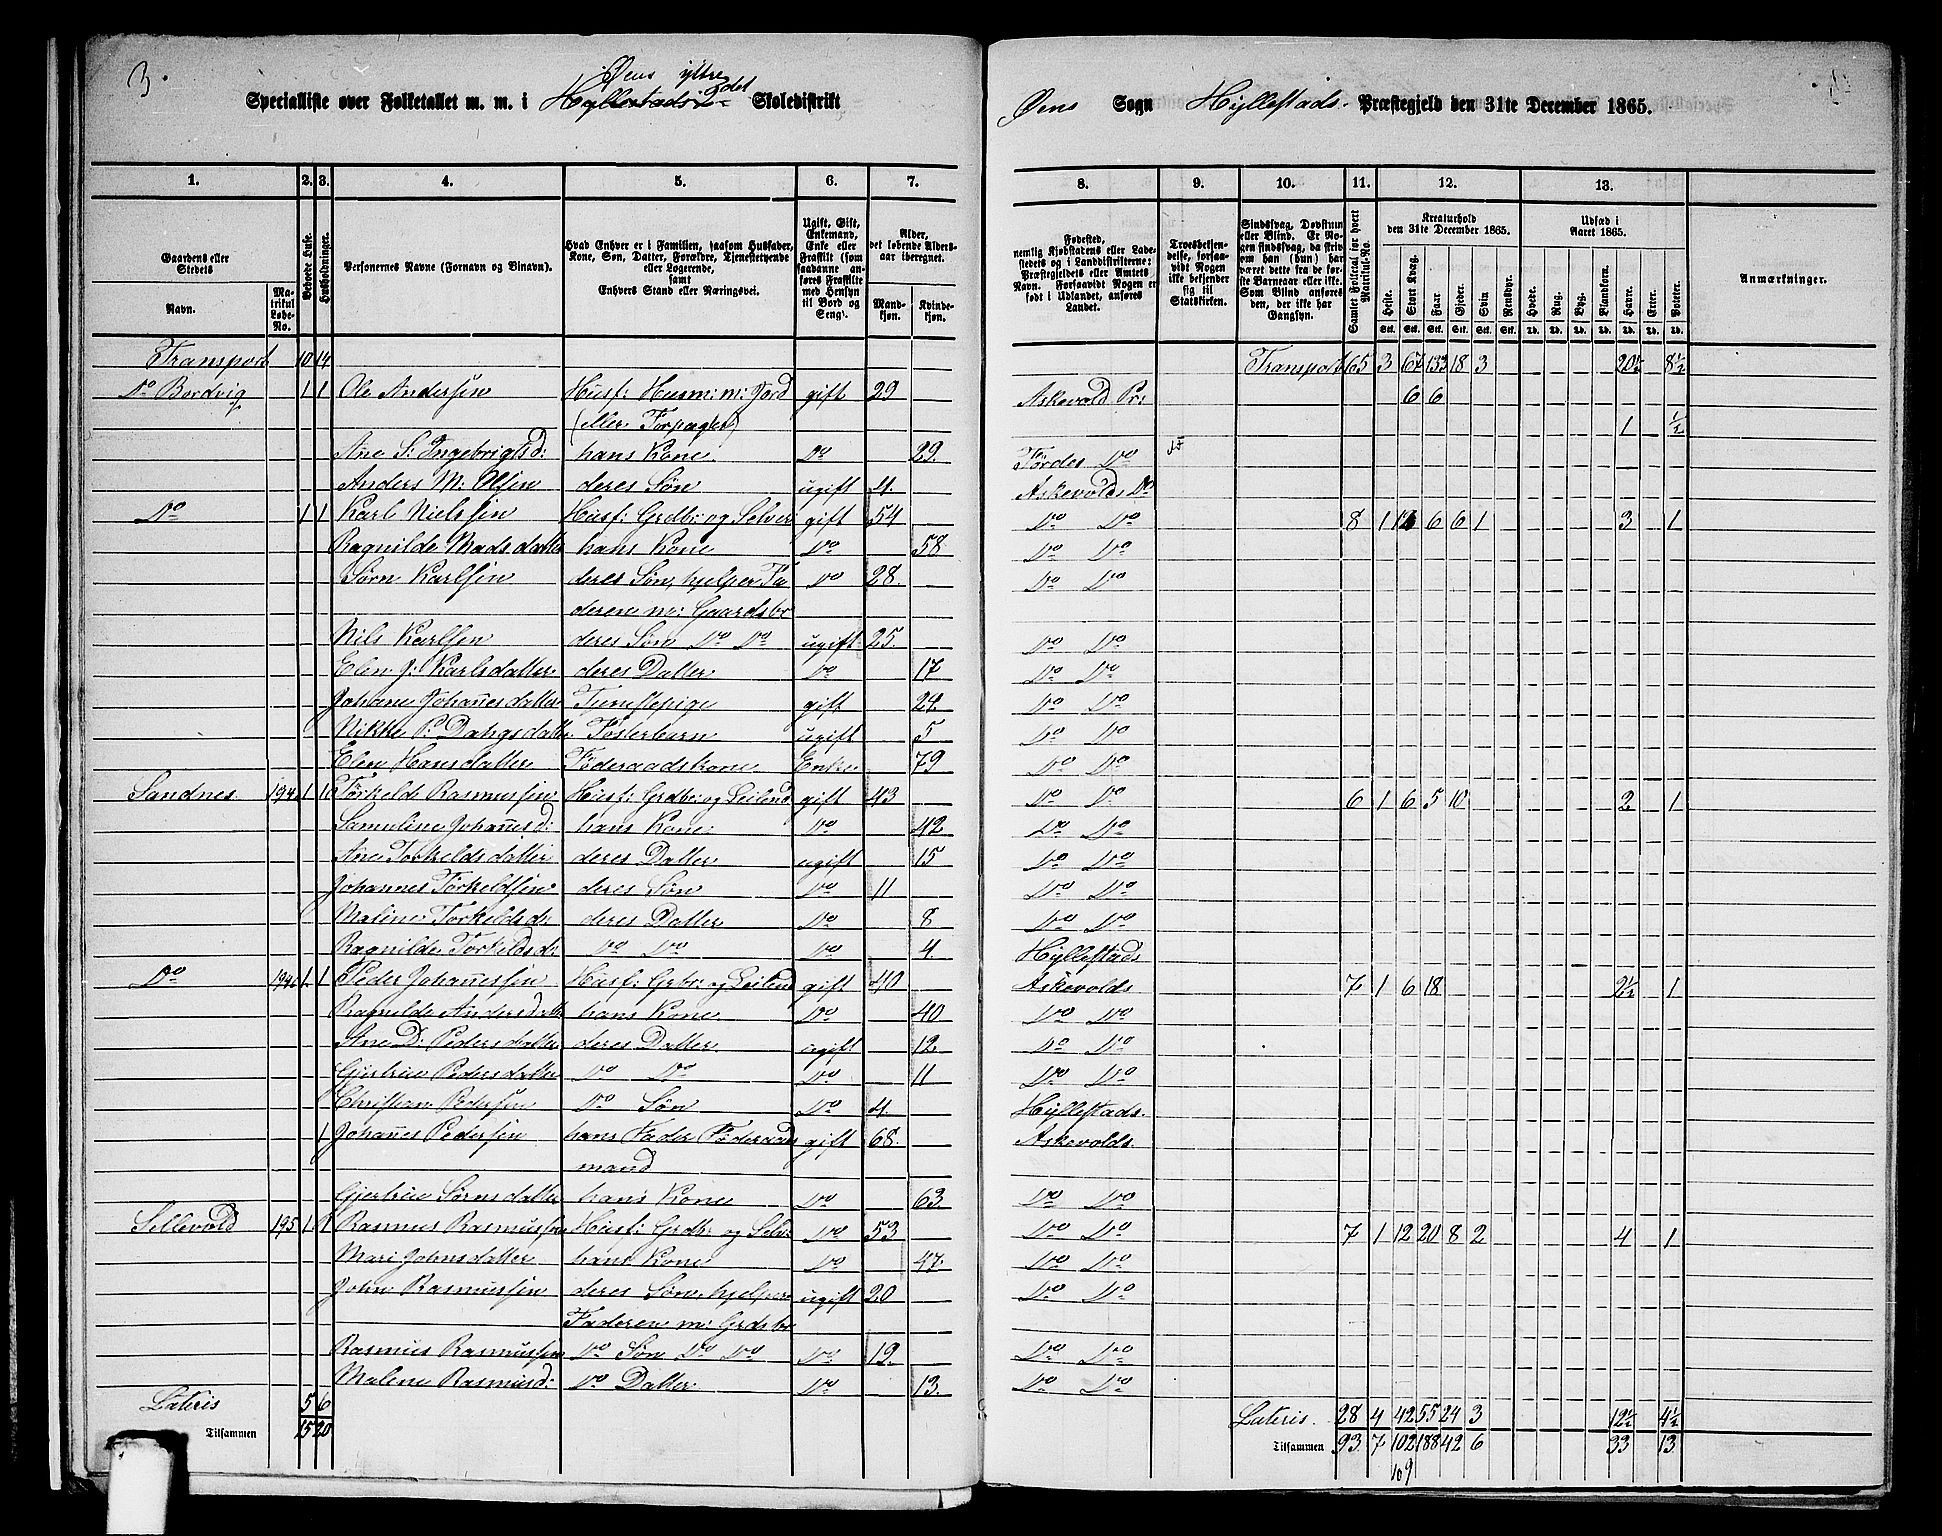 3.
Øens ytre
Specialliste over Folketallet m. m. i Hyllestads 2det Skoledistrikt
Øens Sogn Hyllestads Præstegjeld den 31te December 1865.
1. 2. 3. 4. 5. 6. 7. 8. 9. 10. 11. 12. 13.
Gaardens eller Stedets
Navn.
Matrikul Løbe-No.
Beboede Huse.
Husholdninger.
Personernes Navne (Fornavn og Binavn).
Hvad Enhver er i Familien, saasom Husfader, Kone, Søn, Datter, Forældre, Tjenestetyende eller Logerende, samt Enhvers Stand eller Næringsvei.
Ugift, Gift, Enkemand, Enke eller Fraskilt (som saadanne anføres Fraskilte med Hensyn til Bord og Seng).
Alder, det løbende Alders-aar iberegnet.
Mand-kjøn.
Kvinde-kjøn.
Fødested, nemlig Kjøbstadens eller Ladestedets og i Landdistrikterne: Præstegjeldets eller Amtets Navn. Forsaavidt Nogen er født i Udlandet, anføres Landet.
Troesbekjendelse, forsaavidt Nogen ikke bekjender sig til Statskirken.
Sindssvag, Døvstum eller Blind.
Samlet Folketal for hvert Matrikul-No.
Kreaturhold den 31te December 1865.
Heste. Stort Kvæg. Faar. Gjeder. Svin. Rensdyr.
Udsæd i Aaret 1865.
Hvede. Rug. Byg. Blandkorn. Havre. Erter. Poteter.
Anmærkninger.
Transport 10 14 Transport 65 3 67 133 18 3 20½ 8½
Do Bordvig 1 1 Ole Andersen Husf: Husm: m: Jord gift 29 Askevold Pr: 6 6
(eller Forpagter) 1 ½
Ane S: Ingebrigtsd: hans Kone Do 29 Førdes Do
Anders M: Olsen deres Søn ugift 4 Askevolds Do
Do 1 1 Karl Nielssen Husf: Grdbr: og Selver gift 54 Do Do 8 1 12 6 6 1 3 1
Ragnilde Madsdatter hans Kone Do 58 Do Do
Sørn Karlsen deres Søn, hjelper Fa Do 28 Do Do
deren m: Gaardsbr
Nils Karlsen deres Søn Do Do ugift 25 Do Do
Elen J: Karlsdatter deres Datter Do 17 Do Do
Johane Johanesdatter Tjenestepige gift 24 Do Do
Datter Fosterbarn ugift 5 Do Do
Elen Hansdatter Føderaadskone Enke 79 Do Do
Sandnes 194 1 1 Torkeld Rasmussen Husf: Grdbr: og Leilend gift 43 Do Do 6 1 6 5 10 2 1
Samuline Johannesd: hans Kone Do 42 Do Do
Ane Torkeldsdatter deres Datter ugift 15 Do Do
Johannes Torkeldsen deres Søn Do 11 Do Do
Maline Torkeldsd: deres Datter Do 8 Do Do
Ragnilde Torkeldsd: Do Do Do 4 Hyllestads
Do 194 1 1 Peder Johanessen Husf: Grbr: og Leilend gift 40 Askevolds 7 1 6 18 2½ 1
Ragnilde Andersdatt hans Kone Do 40 Do Do
Ane D: Pedersdatter deres Datter ugift 12 Do Do
Gjertrue Pedersdatter Do Do Do 11 Do Do
Christian Pedersen Do Søn Do 4 Hyllestads
1 Johanes Pedersen hans Fader Føderaads gift 68 Askevolds
mand
Gjertrue Sørnsdatter hans Kone Do 63 Do Do
Sellevold 195 1 1 Rasmus Rasmussen Husf: Grdb: og Selv: Do 53 Do Do 7 1 12 20 8 2 4 1
Mari Johnsdatter hans Kone Do 47 Do Do
John Rasmussen deres Søn, hjelper ugift 20 Do Do
Faderen m: Grdsbr
Rasmus Rasmussen Do Søn Do Do Do 19 Do Do
Malene Rasmusd: Do Datter Do 13 Do Do
Lateris 5 6 Lateris 28 4 42 55 24 3 12½ 4½
Tilsammen 15 20 Tilsammen 93 7 102 188 42 6 33 13
109